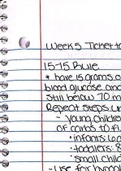 Week 5 Ticket to
15-15 Rule
* have 15 grams o
blood glucose and
still below 70 m
Repeat steps u
- Young childre
of carbs to fi
• infants: 6
• toddlers: 8
• small child
- Use for hypogl